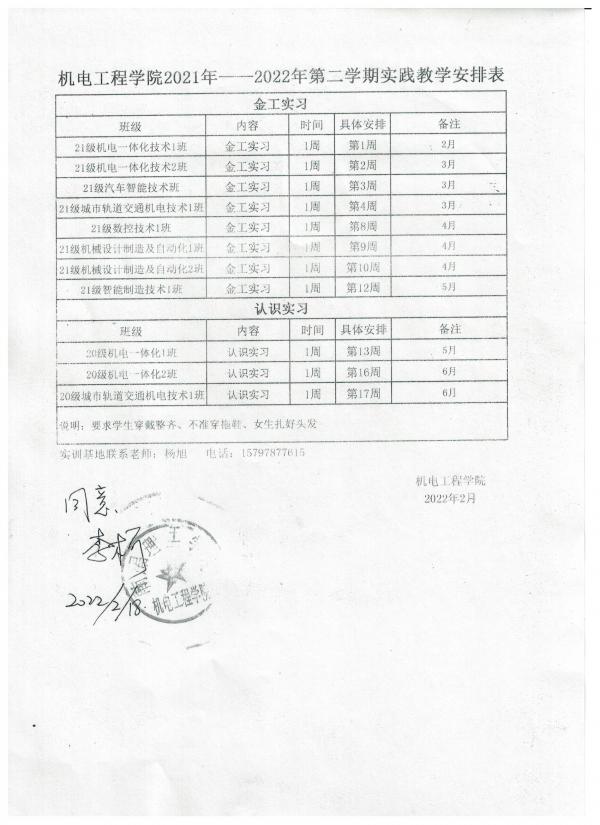 机电工程学院2021年——2022年第二学期实践教学安排表
金工实习
班级 内容 时间 具体安排 备注
21级机电一体化技术1班 金工实习 1周 第1周 2月
21级机电一体化技术2班 金工实习 1周 第2周 3月
21级汽车智能技术班 金工实习 1周 第3周 3月
21级城市轨道交通机电技术1班 金工实习 1周 第4周 3月
21级数控技术1班 金工实习 1周 第8周 4月
21级机械设计制造及自动化1班 金工实习 1周 第9周 4月
21级机械设计制造及自动化2班 金工实习 1周 第10周 4月
21级智能制造技术1班 金工实习 1周 第12周 5月
认识实习
班级 内容 时间 具体安排 备注
20级机电一体化1班 认识实习 1周 第13周 5月
20级机电一体化2班 认识实习 1周 第16周 6月
20级城市轨道交通机电技术1班 认识实习 1周 第17周 6月
说明：要求学生穿戴整齐、不准穿拖鞋、女生扎好头发
实训基地联系老师：杨旭 电话：15797877615
机电工程学院
2022年2月
同意
李
2022/2/18
南昌理工学
机电工程学院